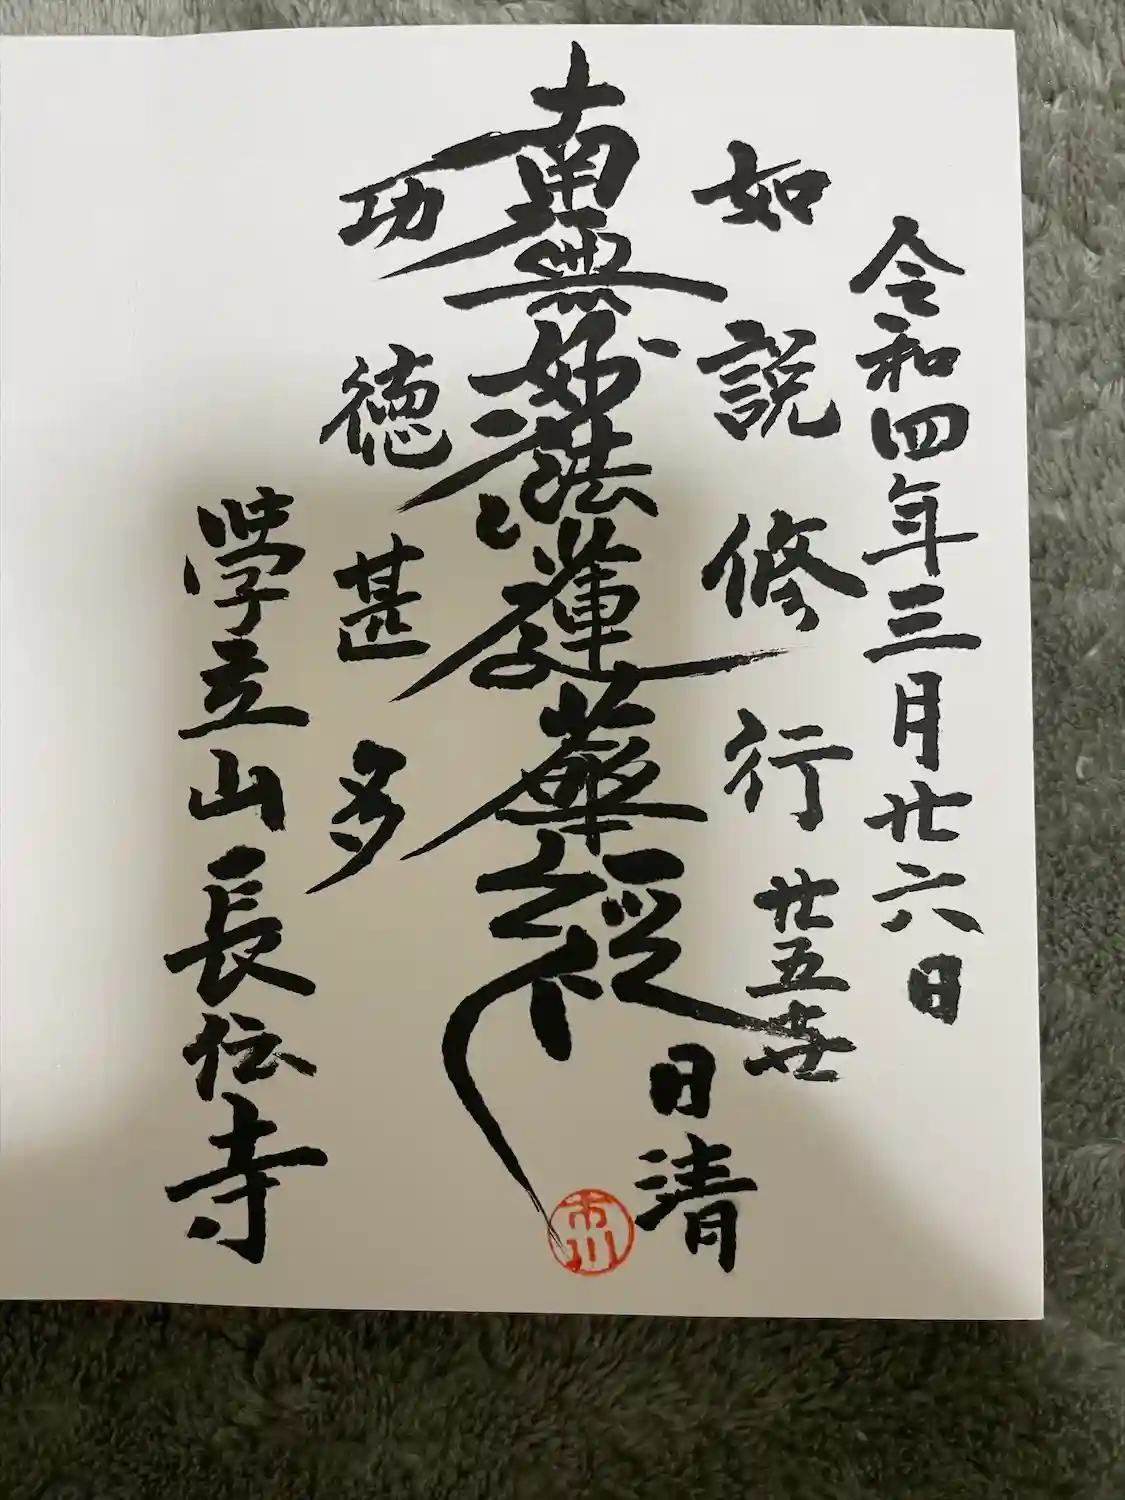 令和四年三月廿六日
如説修行 廿五世
日清
南無妙法蓮華経
功徳甚多
學立山長伝寺
市川